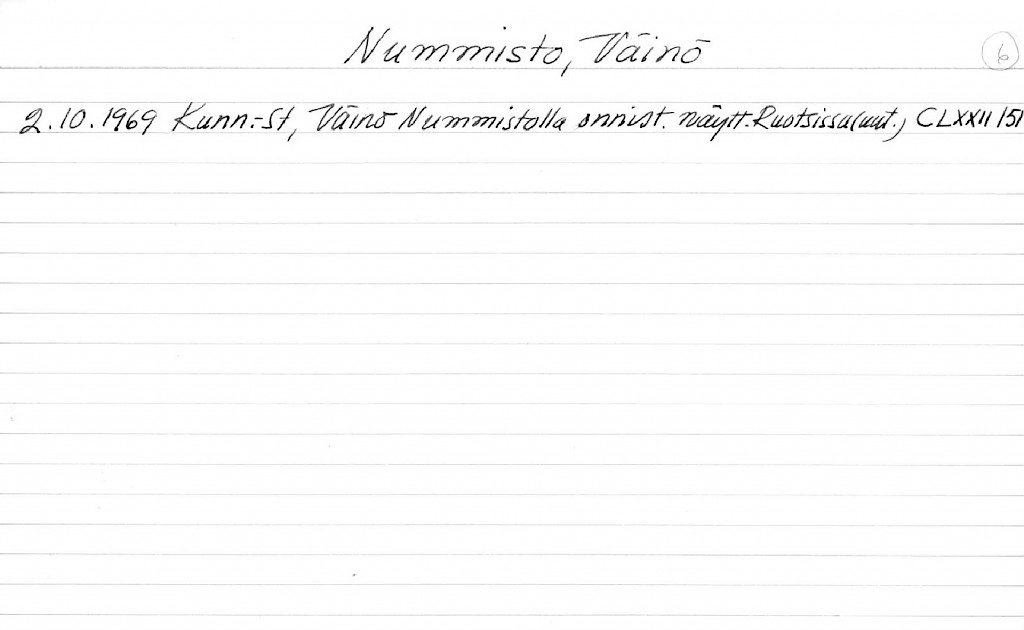 Nummisto, Väinö
6
2.10.1969 Kunn.-St, Väinö Nummistolla onnist. näytt. Ruotsissa (uut.) CLXXII/51